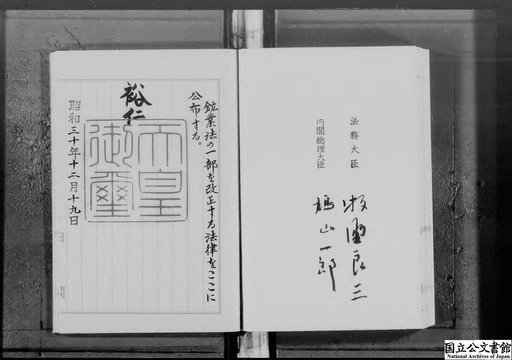 法務大臣
牧野良三
内閣総理大臣
鳩山一郎
鉱業法の一部を改正する法律をここに
公布する。
裕仁
天皇
御璽
昭和三十年十二月十九日
国立公文書館
National Archives of Japan